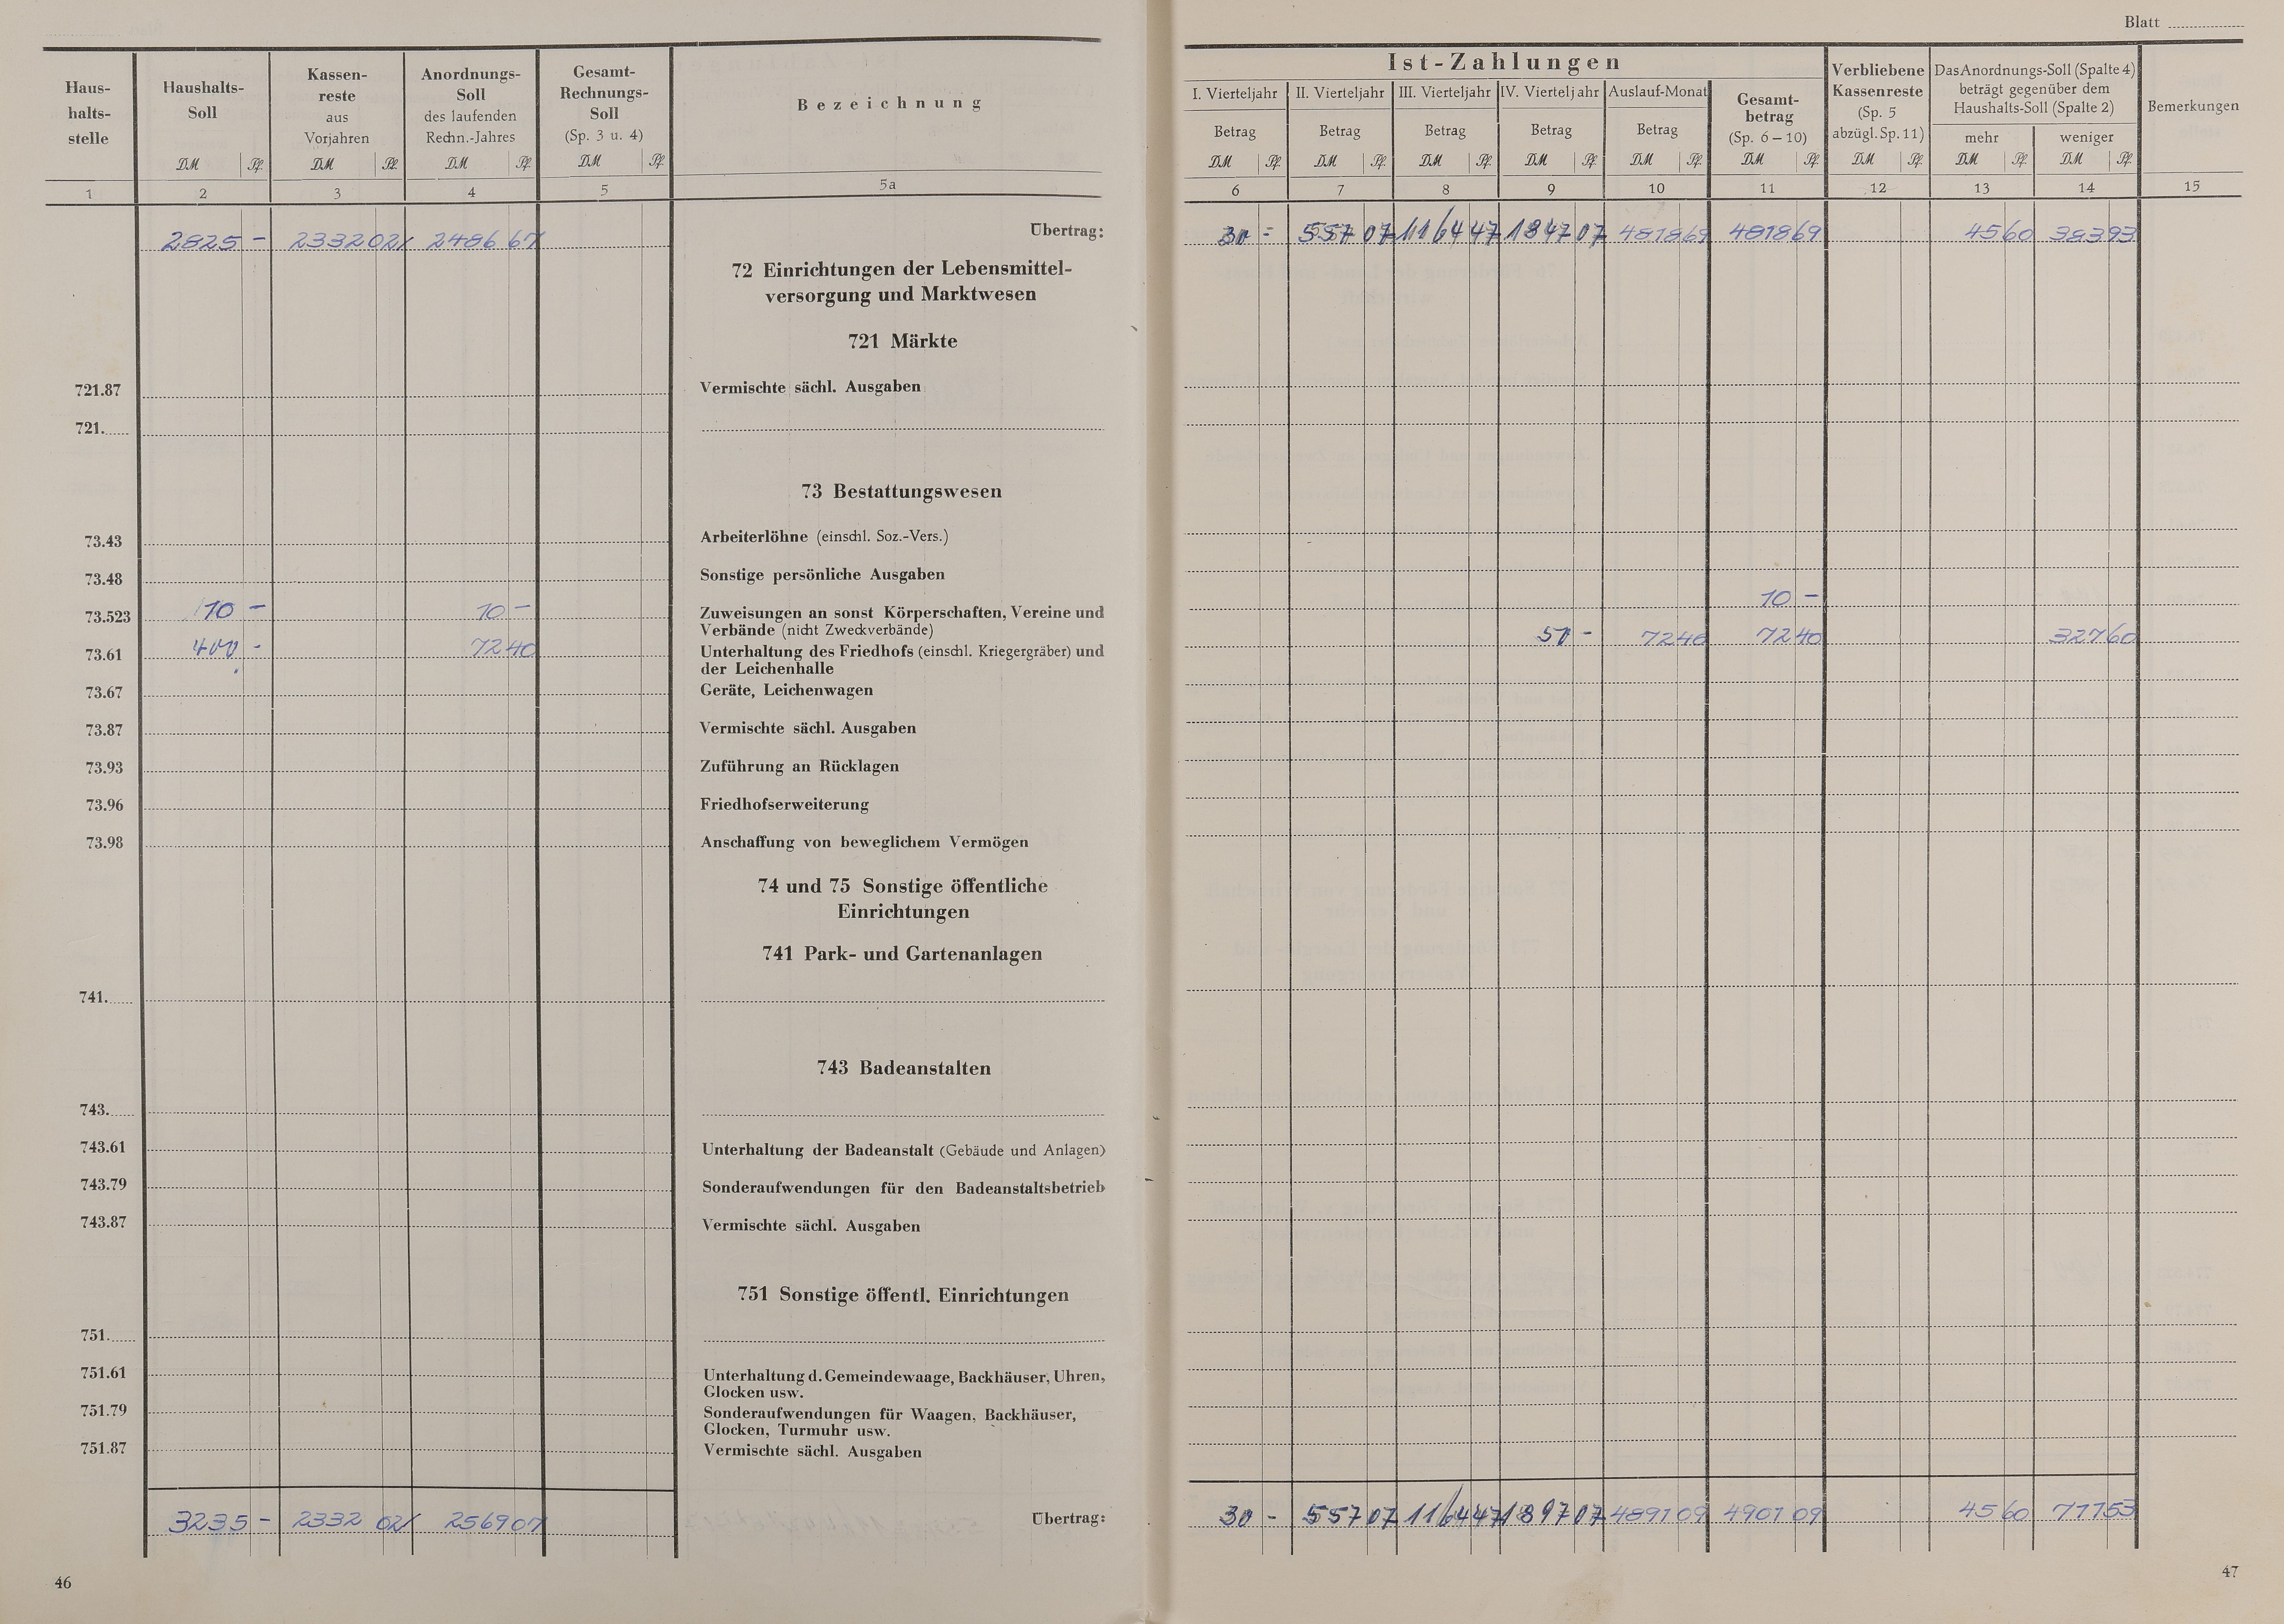 Blatt
Haus-
halts-
stelle
Haushalts-
Soll
Kassen-
reste
aus
Vorjahren
Anordnungs-
Soll
des laufenden
Rechn.-Jahres
Gesamt-
Rechnungs-
Soll
(Sp. 3 u. 4)
Bezeichnung
DM Pf. DM Pf. DM Pf. DM Pf.
1 2 3 4 5 5a
2825 - 2332 02 2486 67 Übertrag:
72 Einrichtungen der Lebensmittel-
versorgung und Marktwesen
721 Märkte
721.87 Vermischte sächl. Ausgaben
721.
73 Bestattungswesen
73.43 Arbeiterlöhne (einschl. Soz.-Vers.)
73.48 Sonstige persönliche Ausgaben
73.523 10 - 10 - Zuweisungen an sonst Körperschaften, Vereine und
Verbände (nicht Zweckverbände)
73.61 400 - 72 40 Unterhaltung des Friedhofs (einschl. Kriegergräber) und
der Leichenhalle
73.67 Geräte, Leichenwagen
73.87 Vermischte sächl. Ausgaben
73.93 Zuführung an Rücklagen
73.96 Friedhofserweiterung
73.98 Anschaffung von beweglichem Vermögen
74 und 75 Sonstige öffentliche
Einrichtungen
741 Park- und Gartenanlagen
741.
743 Badeanstalten
743.
743.61 Unterhaltung der Badeanstalt (Gebäude und Anlagen)
743.79 Sonderaufwendungen für den Badeanstaltsbetrieb
743.87 Vermischte sächl. Ausgaben
751 Sonstige öffentl. Einrichtungen
751.
751.61 Unterhaltung d. Gemeindewaage, Backhäuser, Uhren,
Glocken usw.
751.79 Sonderaufwendungen für Waagen, Backhäuser,
Glocken, Turmuhr usw.
751.87 Vermischte sächl. Ausgaben
3235 - 2332 02 2569 07 Übertrag:
46
Ist-Zahlungen
I. Vierteljahr II. Vierteljahr III. Vierteljahr IV. Vierteljahr Auslauf-Monat
Betrag Betrag Betrag Betrag Betrag
Gesamt-
betrag
(Sp. 6–10)
Verbliebene
Kassenreste
(Sp. 5
abzügl. Sp. 11)
Das Anordnungs-Soll (Spalte 4)
beträgt gegenüber dem
Haushalts-Soll (Spalte 2)
mehr weniger
Bemerkungen
DM Pf. DM Pf. DM Pf. DM Pf. DM Pf. DM Pf. DM Pf. DM Pf. DM Pf.
6 7 8 9 10 11 12 13 14 15
30 - 557 07 1164 47 1847 07 4818 69 4818 69 45 60 383 93
10 -
50 - 72 40 72 40 327 60
30 - 557 07 1164 47 1897 07 4891 09 4901 09 45 60 711 53
47